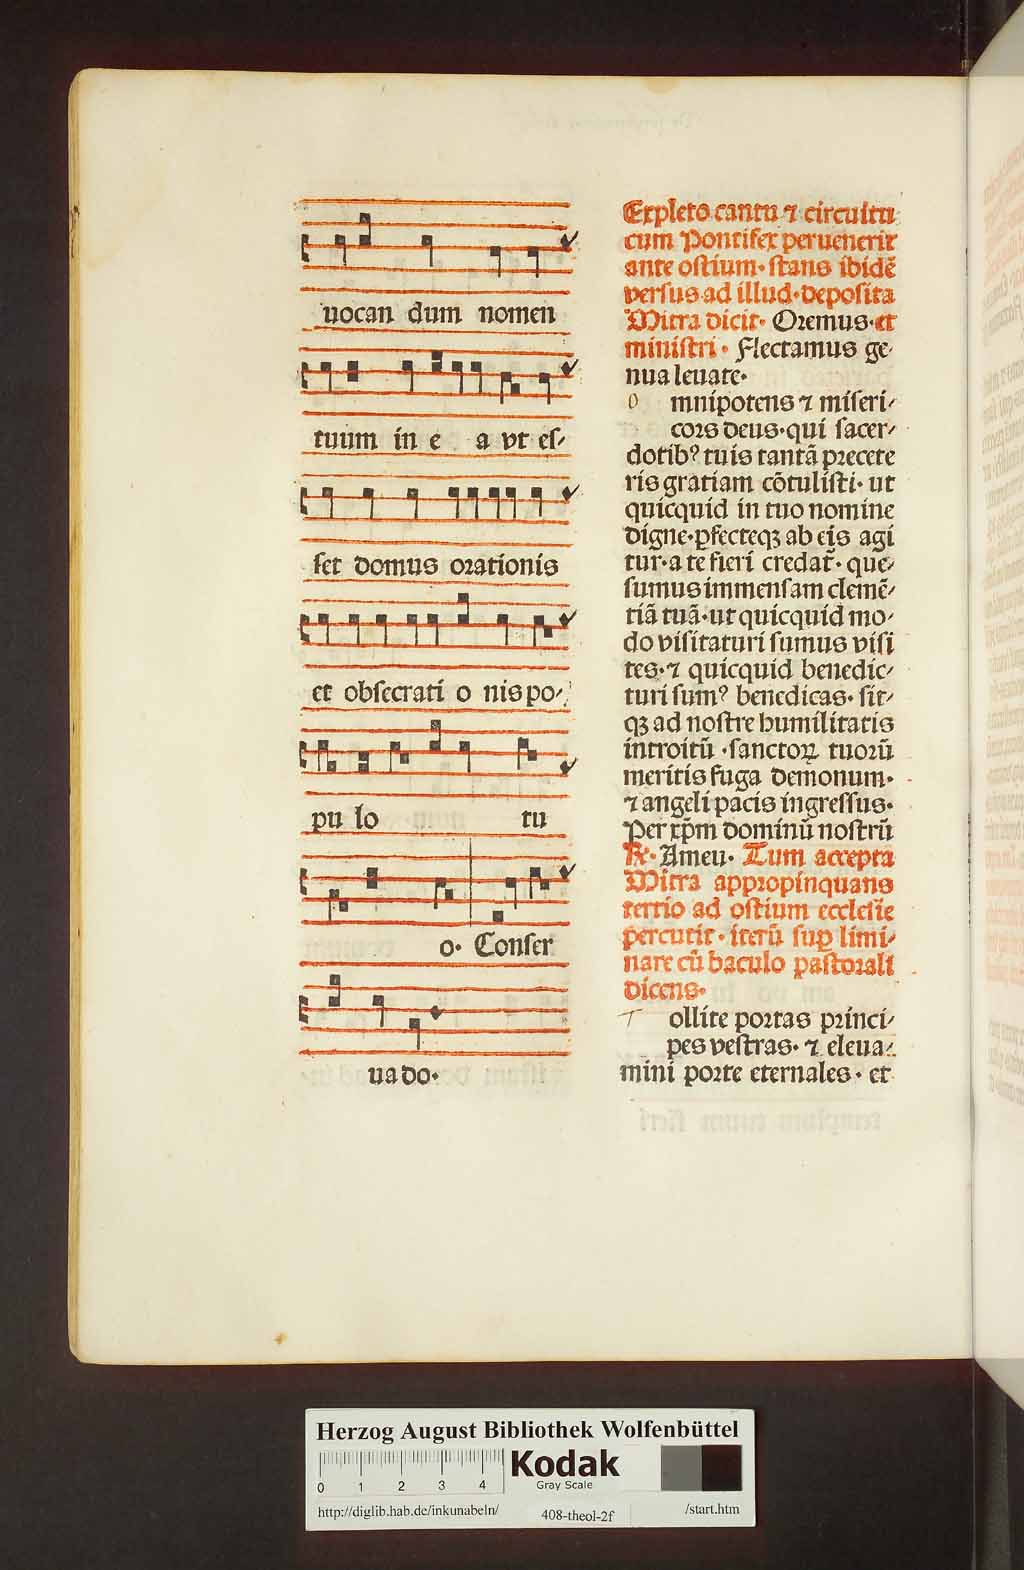 uocan dum nomen
tuum in e a vt eſ⸗
ſet domus orationis
et obſecrati o nis po⸗
pu lo tu
o· Conſer
uado·
Expleto cantu ⁊ circuitu
cum Pontifex peruenerit
ante oſtium· ſtans ibidē
verſus ad illud· depoſita
Mitra dicit· Oremus· et
miniſtri· Flectamus ge⸗
nua leuate·
o mnipotens ⁊ miſeri⸗
cors deus· qui ſacer⸗
dotibꝰ tuis tantā p̱recete
ris gratiam cōtuliſti· ut
quicquid in tuo nomine
digne· ꝑfecteqꝫ ab eis agi
tur· a te fieri credat᷑· que⸗
ſumus immenſam clemē⸗
tiā tuā· ut quicquid mo⸗
do viſitaturi ſumus viſi
tes· ⁊ quicquid benedic⸗
turi ſumꝰ benedicas· ſit⸗
qꝫ ad noſtre humilitatis
introitū · ſanctoꝝ tuorū
meritis fuga demonum·
⁊ angeli pacis ingreſſus·
Per xp̄m dominū noſtrū
℟· Ameu· Tum accepta
Mitra appropinquans
tertio ad oſtium eccleſie
percutit· iterū ſuꝑ limi⸗
nare cū baculo paſtorali
dicens·
T ollite portas princi⸗
pes veſtras· ⁊ eleua⸗
mini porte eternales· et
Herzog August Bibliothek Wolfenbüttel
0 1 2 3 4 Kodak
Gray Scale
http://diglib.hab.de/inkunabeln/ 408-theol-2f /start.htm